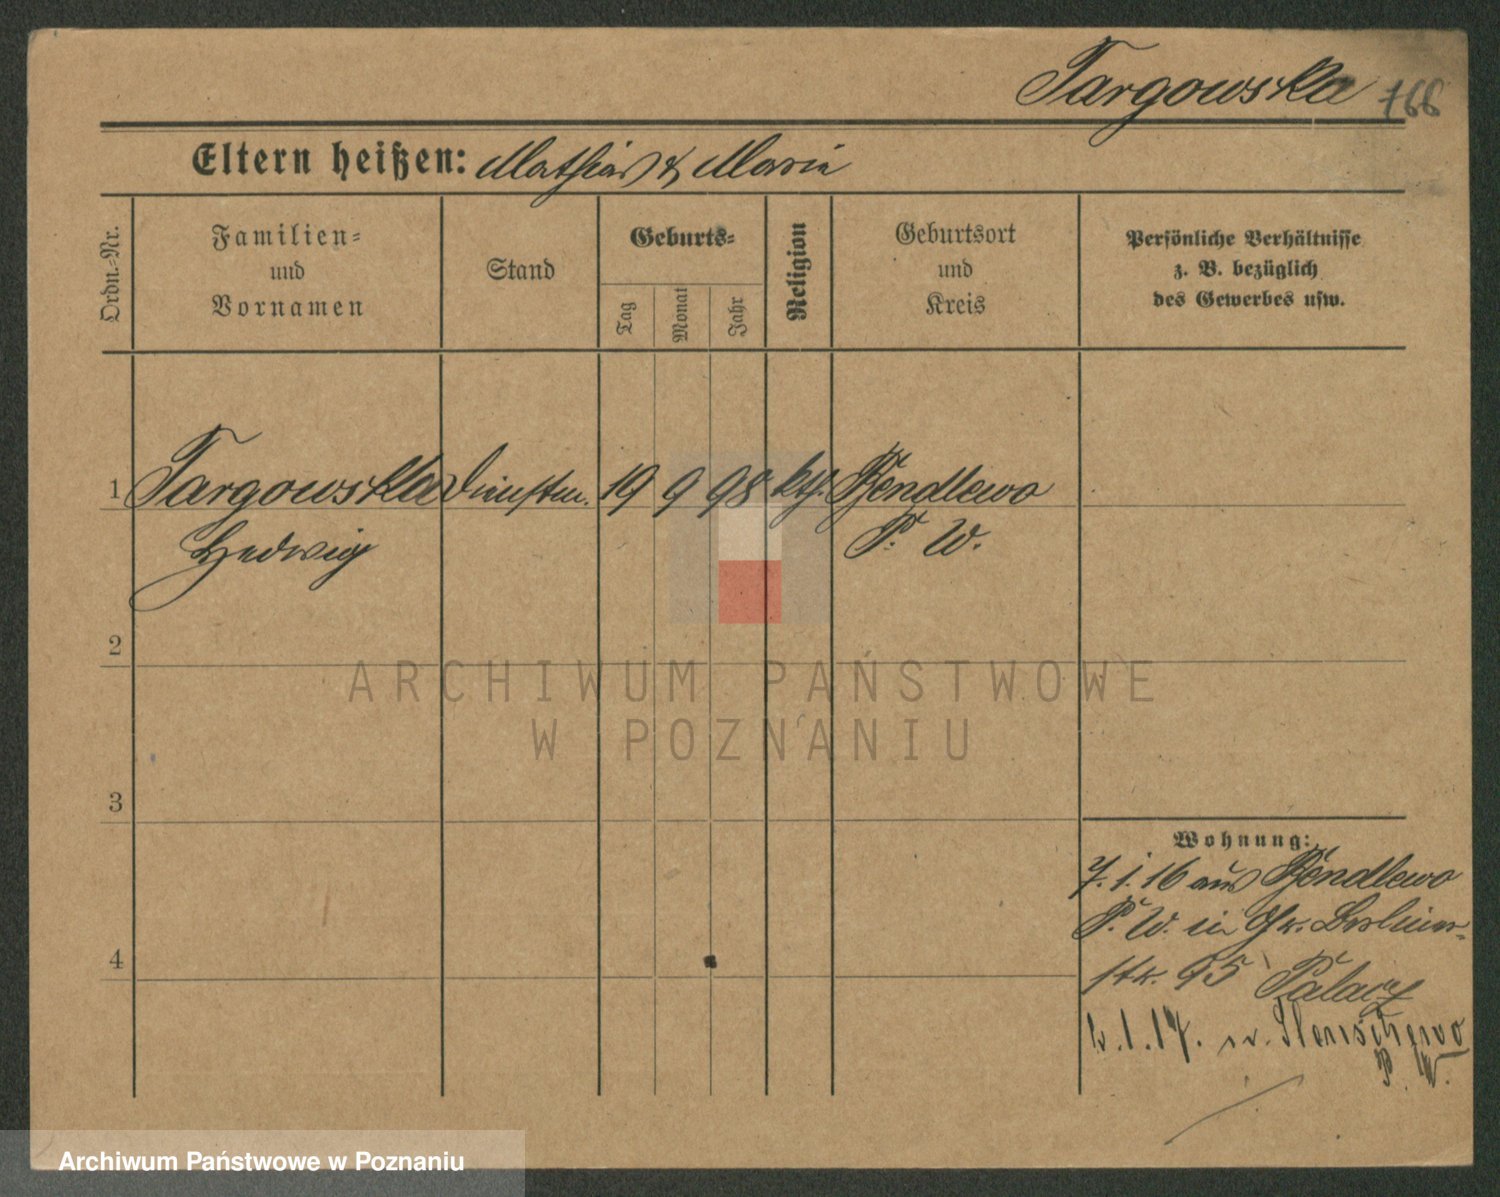 Targowska 766
Eltern heißen: Mathias & Maria
Ordn.-Nr.
Familien-
und
Vornamen
Stand
Geburts-
Tag
Monat
Jahr
Religion
Geburtsort
und
Kreis
Persönliche Verhältnisse
z. B. bezüglich
des Gewerbes usw.
1 Targowska Dienstm. 19 9 98 kth. Bendlewo
Hedwig P. W.
2
3
4
Wohnung:
7. 1. 16 aus Bendlewo
P. W. in Gr. Berliner-
str. 95 Palacz
1.17. n.
P. W.
ARCHIWUM PAŃSTWOWE
W POZNANIU
Archiwum Państwowe w Poznaniu